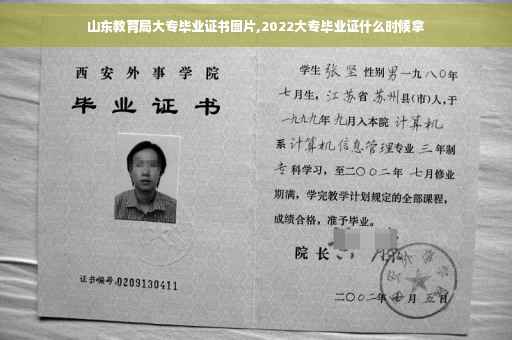 山东教育局大专毕业证书图片,2022大专毕业证什么时候拿
西安外事学院
毕业证书
证书编号:0209130411
学生 张坚 性别 男 一九八〇年
七月生, 江苏省 苏州县(市)人,于
一九九九年 九月入本院 计算机
系 计算机信息管理专业 三年制
专科学习,至二〇〇二年 七月修业
期满,学完教学计划规定的全部课程,
成绩合格,准予毕业。
院长
二〇〇二年 月 五日